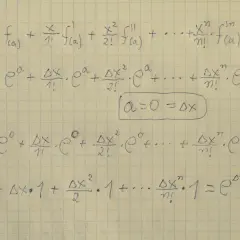 f(a) + x/1! f'(a) + x²/2! f''(a) + ··· + xⁿ/n! fⁿ(a)
eᵃ + Δx/1! · eᵃ + Δx²/2! · eᵃ + ··· + Δxⁿ/n! · e
a = 0 = Δx
e⁰ + Δx/1! · e⁰ + Δx²/2! · e⁰ + ··· + Δxⁿ/n! · e
Δx · 1 + Δx²/2 · 1 + ··· Δxⁿ/n! · 1 = e^Δ